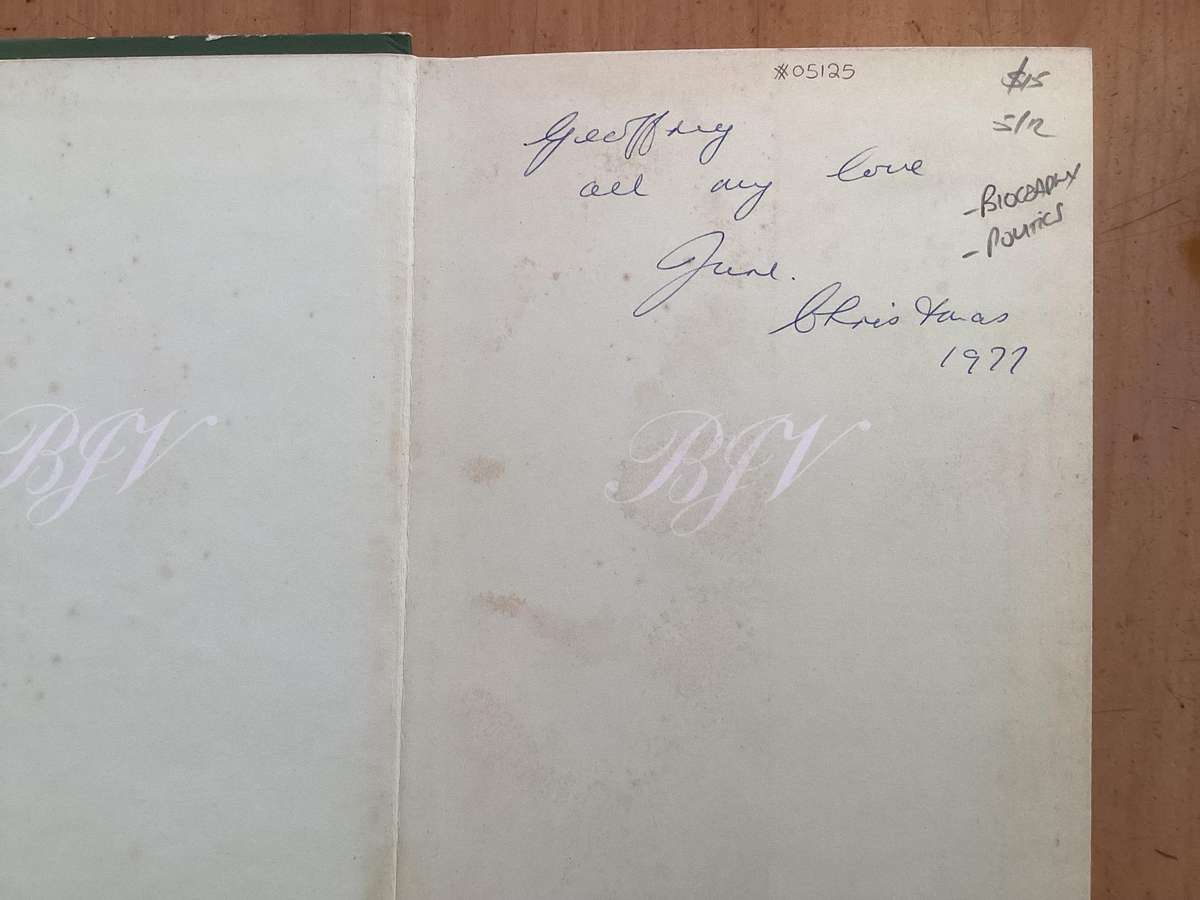 #05125
$15
5/12
Geoffrey
all my love
- BIOGRAPHY
- POLITICS
June.
Christmas
1977
BJV
BJV